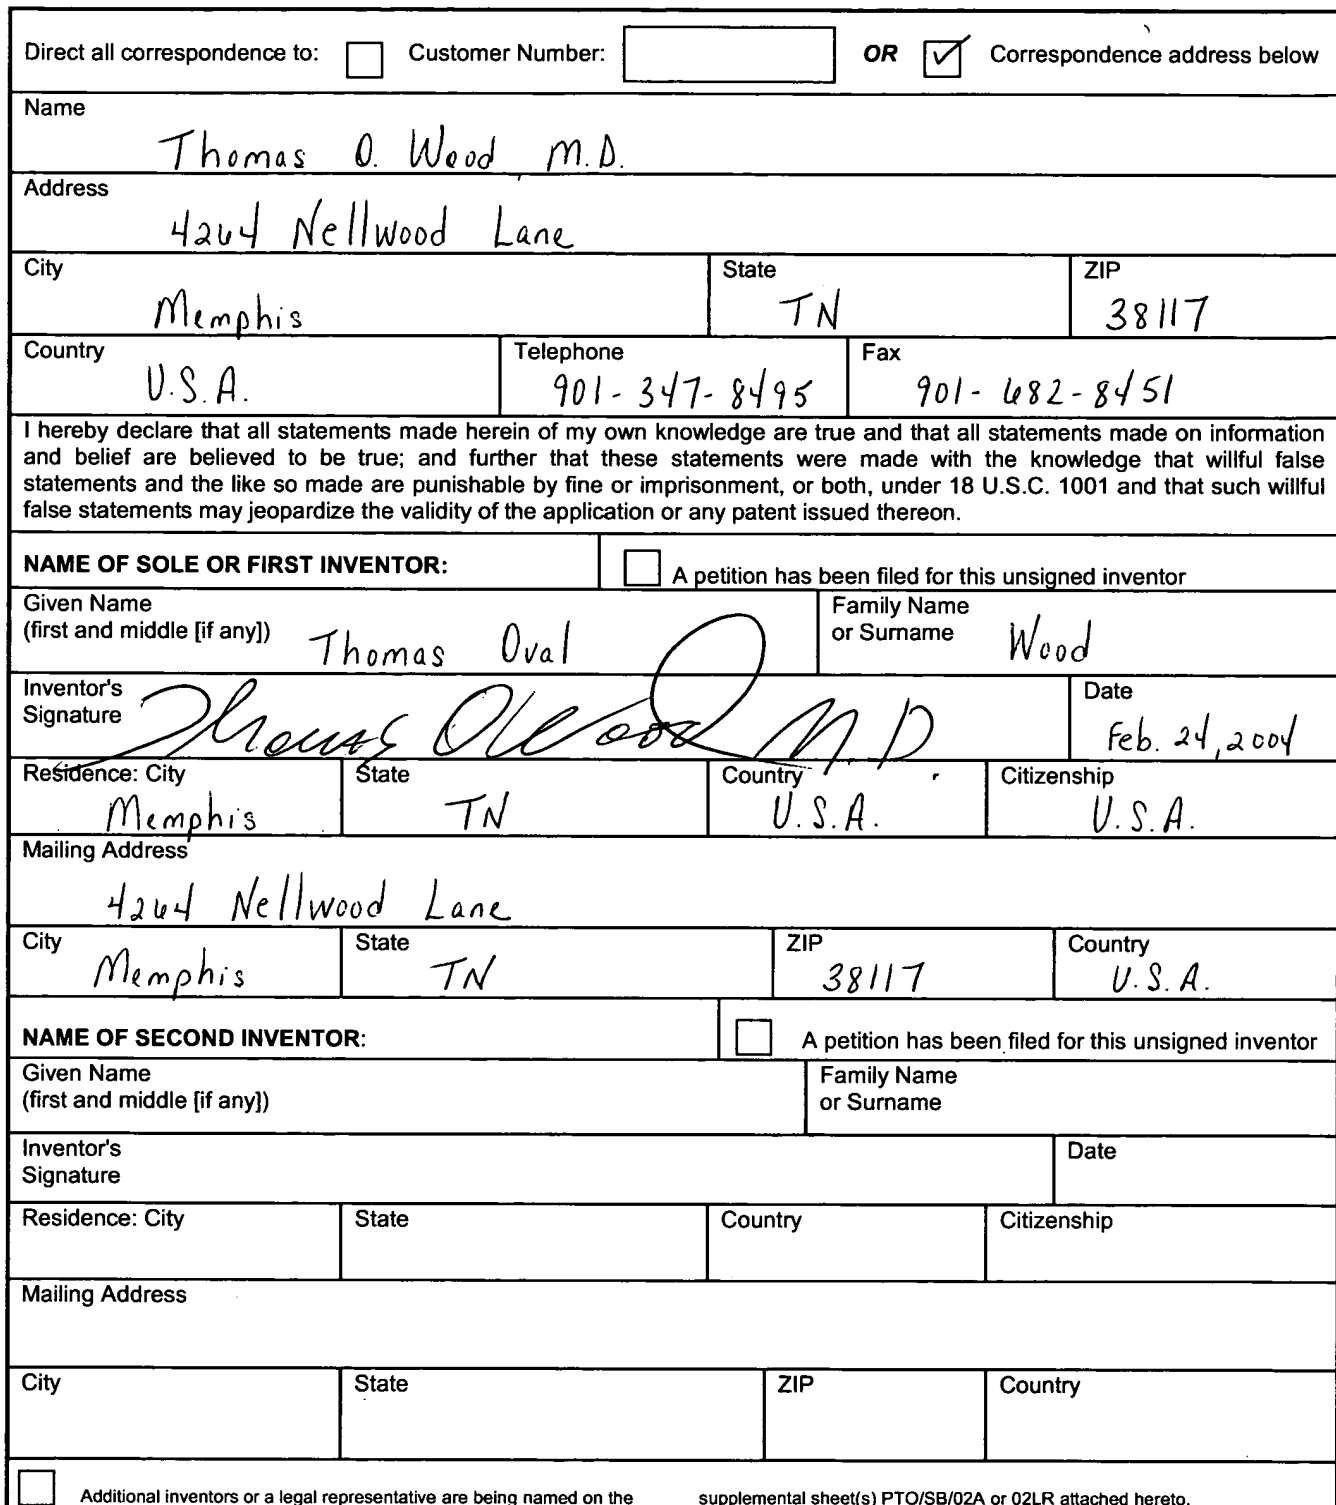 Direct all correspondence to: Customer Number: OR Correspondence address below
Name
Thomas O. Wood M.D.
Address
4264 Nellwood Lane
City State ZIP
Memphis TN 38117
Country Telephone Fax
U.S.A. 901-347-8495 901-682-8451
I hereby declare that all statements made herein of my own knowledge are true and that all statements made on information
and belief are believed to be true; and further that these statements were made with the knowledge that willful false
statements and the like so made are punishable by fine or imprisonment, or both, under 18 U.S.C. 1001 and that such willful
false statements may jeopardize the validity of the application or any patent issued thereon.
NAME OF SOLE OR FIRST INVENTOR: A petition has been filed for this unsigned inventor
Given Name Family Name
(first and middle [if any]) Thomas Oval or Surname Wood
Inventor's Date
Signature Thomas O Wood M.D. Feb. 24, 2004
Residence: City State Country Citizenship
Memphis TN U.S.A. U.S.A.
Mailing Address
4264 Nellwood Lane
City State ZIP Country
Memphis TN 38117 U.S.A.
NAME OF SECOND INVENTOR: A petition has been filed for this unsigned inventor
Given Name Family Name
(first and middle [if any]) or Surname
Inventor's Date
Signature
Residence: City State Country Citizenship
Mailing Address
City State ZIP Country
Additional inventors or a legal representative are being named on the supplemental sheet(s) PTO/SB/02A or 02LR attached hereto.